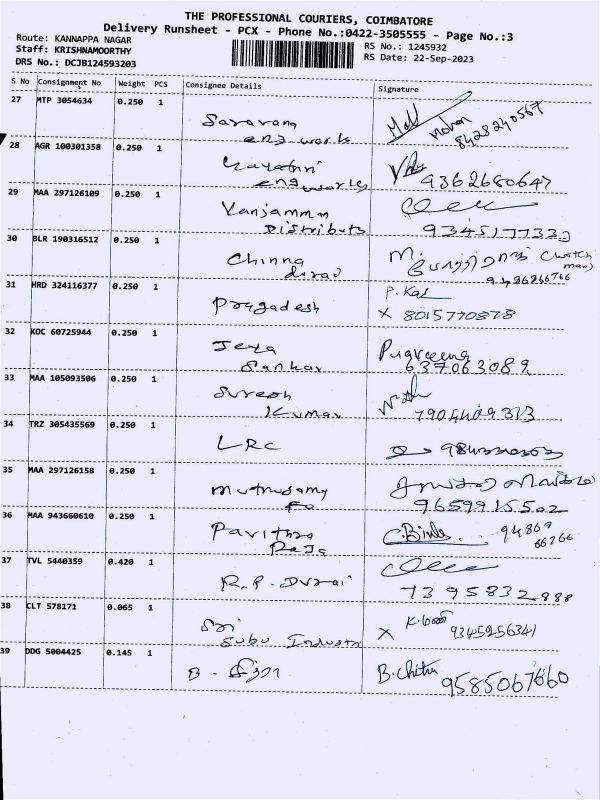 THE PROFESSIONAL COURIERS, COIMBATORE
Delivery Runsheet - PCX - Phone No.:0422-3505555 - Page No.:3
Route: KANNAPPA NAGAR
RS No.: 1245932
Staff: KRISHNAMOORTHY
RS Date: 22-Sep-2023
DRS No.: DCJB124593203
S No Consignment No Weight PCS Consignee Details Signature
27 MTP 3054634 0.250 1
Saravana
eng works
mohan
8428240567
28 AGR 100301358 0.250 1
Gayatri
eng works
9362680647
29 MAA 297126109 0.250 1
Vanjamman
Distributs
30 BLR 190316512 0.250 1
Chinna
durai
M.
(watch
man)
31 HRD 324116377 0.250 1
Pragadesh
P. Kal
X 8015770878
32 KOC 60725944 0.250 1
Jeya
Sankar
637063089
33 MAA 105093506 0.250 1
Suresh
Kumar
7904409313
34 TRZ 305435569 0.250 1
LRC
35 MAA 297126158 0.250 1
Muthusamy
9659915502
36 MAA 943660610 0.250 1
Pavithra
Raja
94869
66266
37 TVL 5440359 0.420 1
R.P. Durai
7395832888
38 CLT 578171 0.065 1
Sri
Subu Industr
X
9345256341
39 DDG 5004425 0.145 1
B. சித்ரா
B. Chitra
9585067660